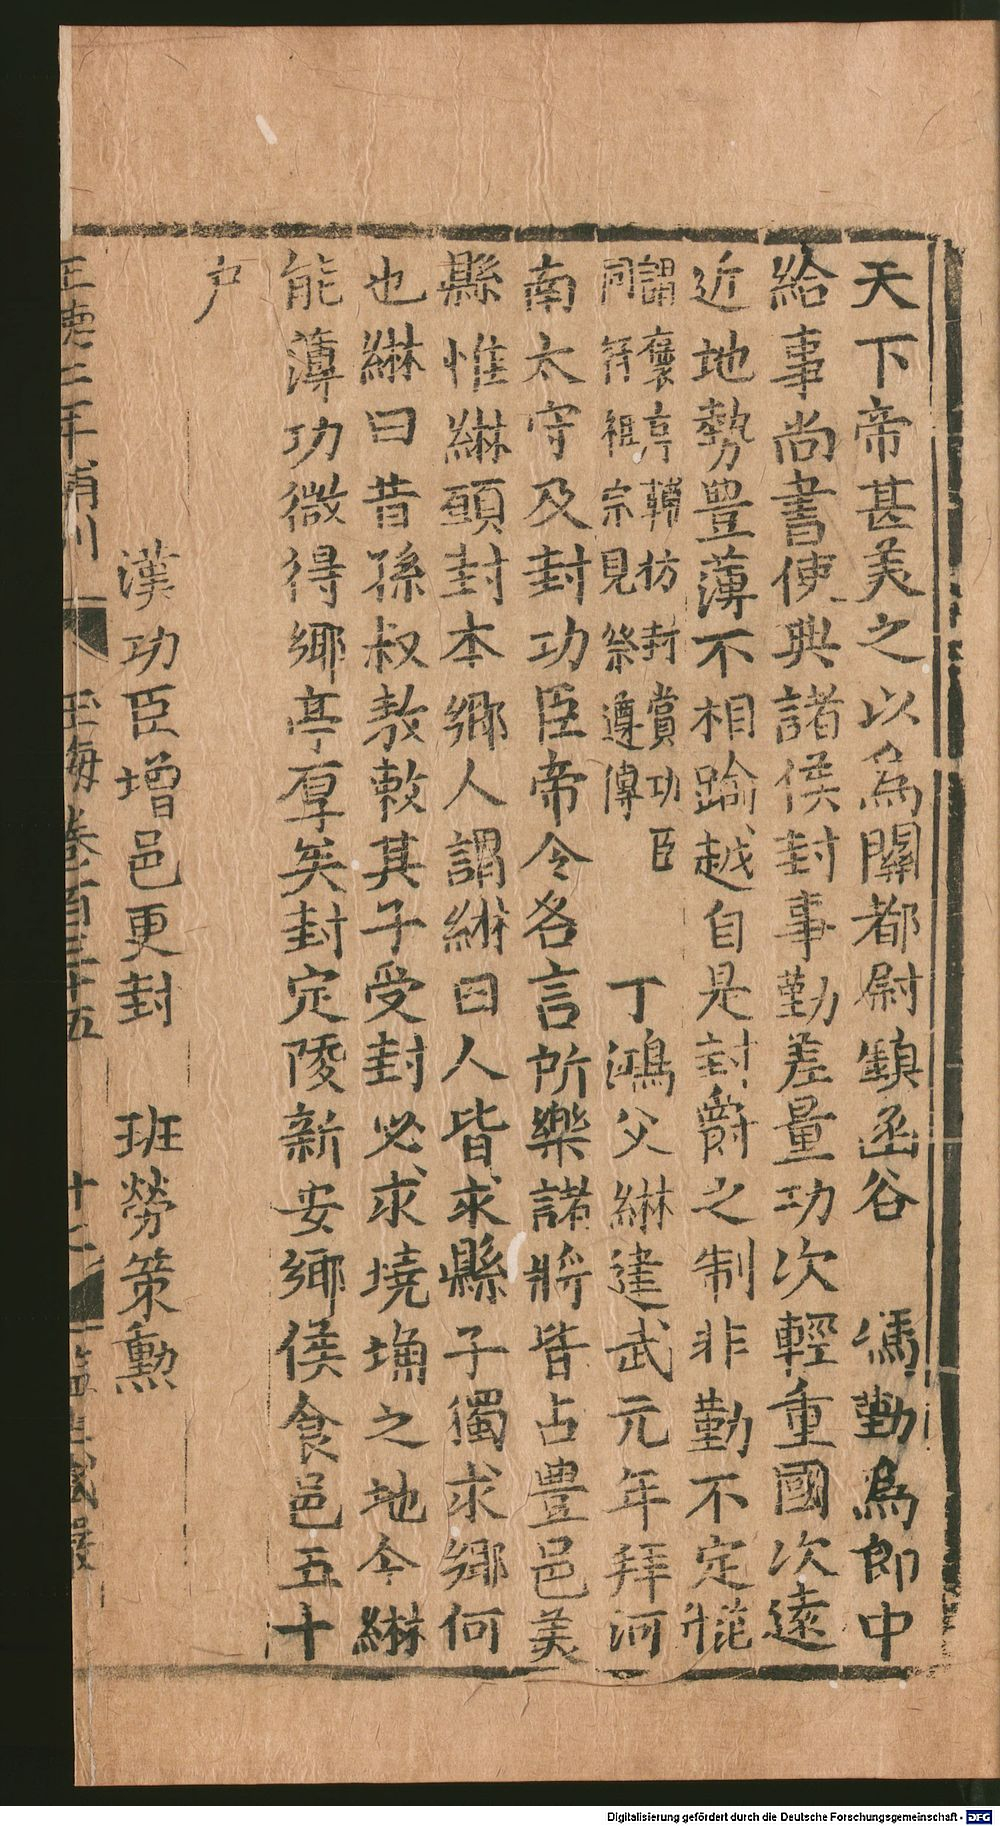 天下帝甚美之以為關都尉鎮函谷　馮勤為郎中
給事尚書使典諸侯封事勤差量功次輕重國次遠
近地勢豊薄不相踰越自是封爵之制非勤不定
謂褒亭
同符祖宗見祭遵傳　丁鴻父綝建武元年拜河
南太守及封功臣帝令各言所樂諸將皆占豊邑美
縣惟綝願封本鄉人謂綝曰人皆求縣子獨求鄉何
也綝曰昔孫叔敖敕其子受封必求墝埆之地今綝
能薄功微得鄉亭厚矣封定陵新安鄉侯食邑五十
户
漢功臣增邑更封　班勞策勲
玉海卷百三十五
Digitalisierung gefördert durch die Deutsche Forschungsgemeinschaft - DFG